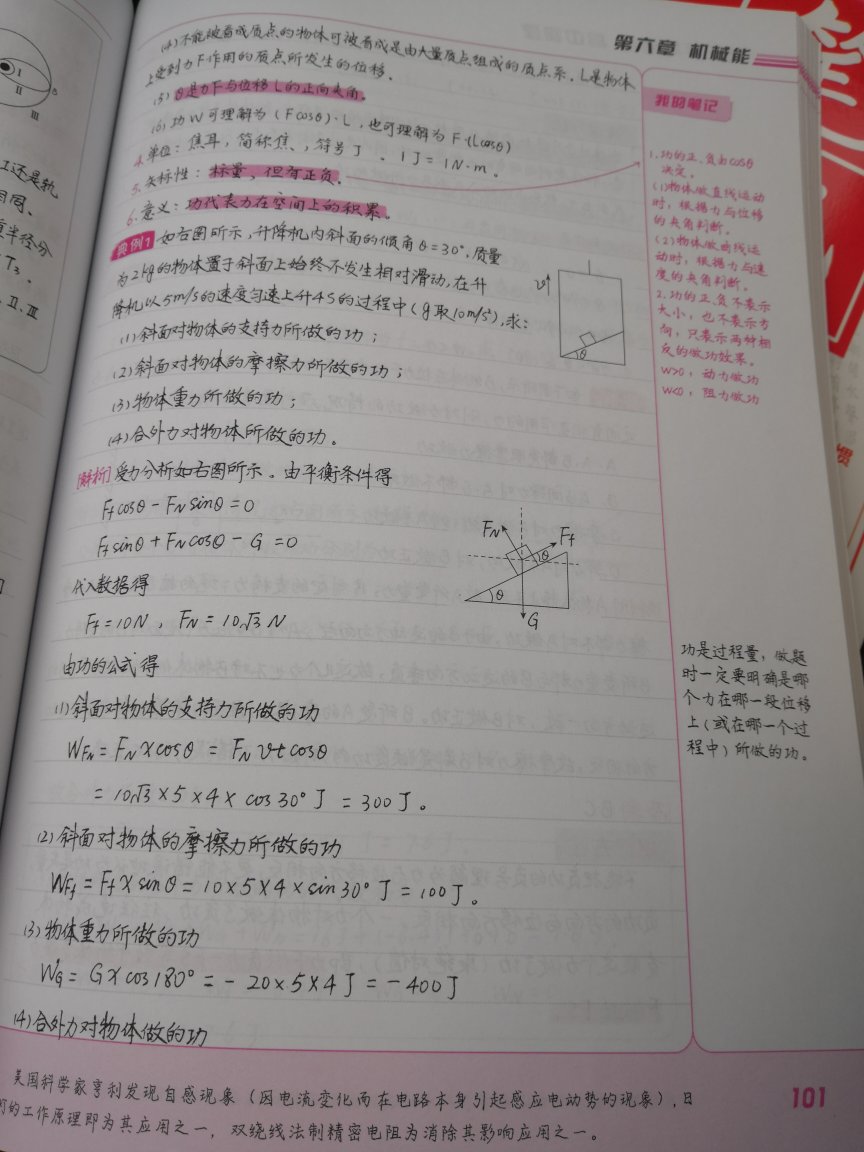 第六章 机械能
(4)不能被看成质点的物体可被看成是由大量质点组成的质点系。L是物体
上受到力F作用的质点所发生的位移。
(5)θ是力F与位移L的正向夹角。
(6)功W可理解为(Fcosθ)·L,也可理解为F·(Lcosθ)
4.单位:焦耳,简称焦,符号J。1J=1N·m。
5.矢标性:标量,但有正负。
6.意义:功代表力在空间上的积累。
典例1 如右图所示,升降机内斜面的倾角θ=30°,质量
为2kg的物体置于斜面上始终不发生相对滑动,在升
降机以5m/s的速度匀速上升4s的过程中(g取10m/s²),求:
(1)斜面对物体的支持力所做的功;
(2)斜面对物体的摩擦力所做的功;
(3)物体重力所做的功;
(4)合外力对物体所做的功。
v
θ
[解析]受力分析如右图所示。由平衡条件得
Ffcosθ-FNsinθ=0
Ffsinθ+FNcosθ-G=0
代入数据得
Ff=10N,FN=10√3N
FN
Ff
θ
θ
G
由功的公式得
(1)斜面对物体的支持力所做的功
WFN=FNxcosθ=FNvtcosθ
=10√3×5×4×cos30°J=300J。
(2)斜面对物体的摩擦力所做的功
WFf=Ffxsinθ=10×5×4×sin30°J=100J。
(3)物体重力所做的功
WG=Gxcos180°=-20×5×4J=-400J
(4)合外力对物体做的功
我的笔记
1.功的正、负由cosθ
决定。
(1)物体做直线运动
时,根据力与位移
的夹角判断。
(2)物体做曲线运
动时,根据力与速
度的夹角判断。
2.功的正、负不表示
大小,也不表示方
向,只表示两种相
反的做功效果。
W>0:动力做功
W<0:阻力做功
功是过程量,做题
时一定要明确是哪
个力在哪一段位移
上(或在哪一个过
程中)所做的功。
美国科学家亨利发现自感现象(因电流变化而在电路本身引起感应电动势的现象),日
的工作原理即为其应用之一,双绕线法制精密电阻为消除其影响应用之一。
101
I
II
III
还是轨
相同。
半径分
T₃。
、II、III
惯